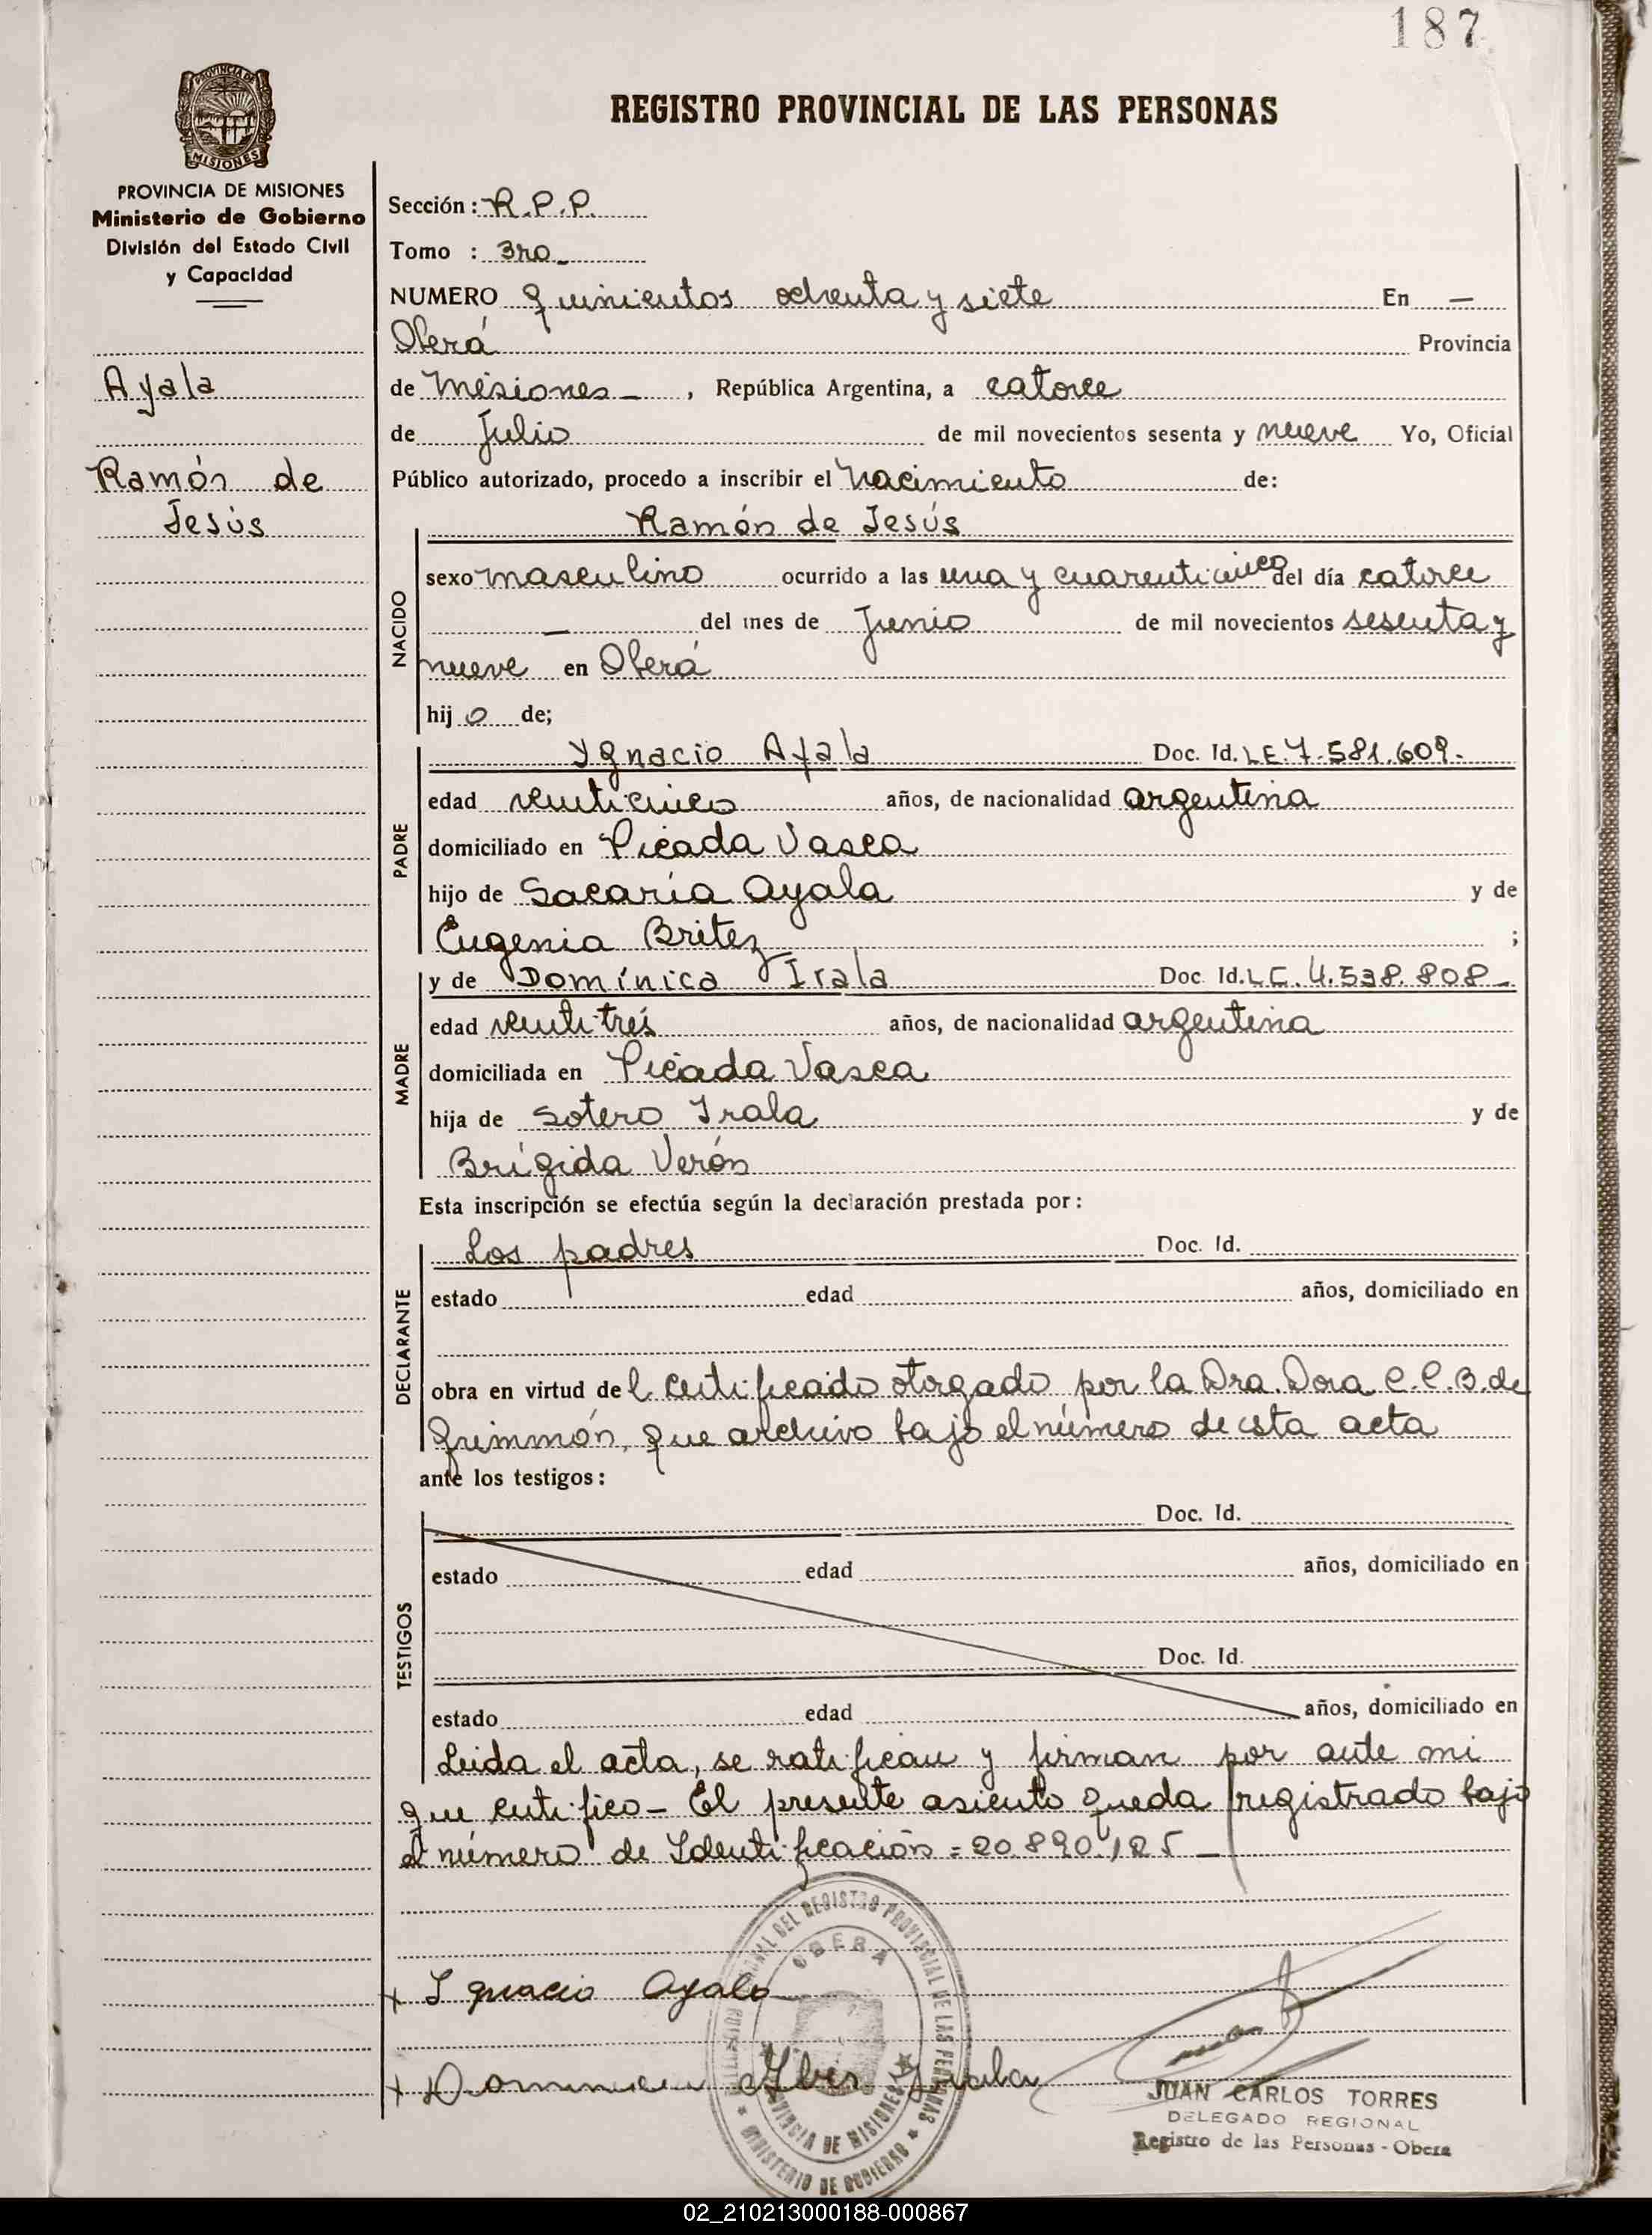 187
REGISTRO PROVINCIAL DE LAS PERSONAS
PROVINCIA DE MISIONES
MISIONES
PROVINCIA DE MISIONES
Ministerio de Gobierno
División del Estado Civil
y Capacidad
Ayala
Ramón de
Jesús
Sección: R.P.P.
Tomo : 3ro_
NUMERO Quinientos ochenta y siete En —
Oberá Provincia
de Misiones_, República Argentina, a catorce
de Julio de mil novecientos sesenta y nueve Yo, Oficial
Público autorizado, procedo a inscribir el Nacimiento de:
Ramón de Jesús
NACIDO
sexo masculino ocurrido a las una y cuarenticinco del día catorce
— del mes de Junio de mil novecientos sesenta y
nueve en Oberá
hijo de;
PADRE
Ygnacio Ayala Doc. Id. LE.7.581.609.
edad veinticinco años, de nacionalidad argentina
domiciliado en Picada Vasca
hijo de Sacaría Ayala y de
Eugenia Britez ;
MADRE
y de Domínica Irala Doc. Id. LC.4.538.808_
edad veintitrés años, de nacionalidad argentina
domiciliada en Picada Vasca
hija de Sotero Irala y de
Brígida Verón
Esta inscripción se efectúa según la declaración prestada por:
DECLARANTE
Los padres Doc. Id.
estado edad años, domiciliado en
obra en virtud del certificado otorgado por la Dra. Dora C.C.B. de
Grimmón, que archivo bajo el número de esta acta
ante los testigos:
TESTIGOS
Doc. Id.
estado edad años, domiciliado en
Doc. Id.
estado edad años, domiciliado en
Leida el acta, se ratifican y firman por ante mi
que certifico_ El presente asiento queda registrado bajo
el número de Identificación = 20.890.125_
DEL REGISTRO PROVINCIAL DE LAS PERSONAS
OBERA
PROVINCIA DE MISIONES
MINISTERIO DE GOBIERNO
+ Ignacio Ayala
+ Irala
JUAN CARLOS TORRES
DELEGADO REGIONAL
Registro de las Personas - Obera
02_210213000188-000867